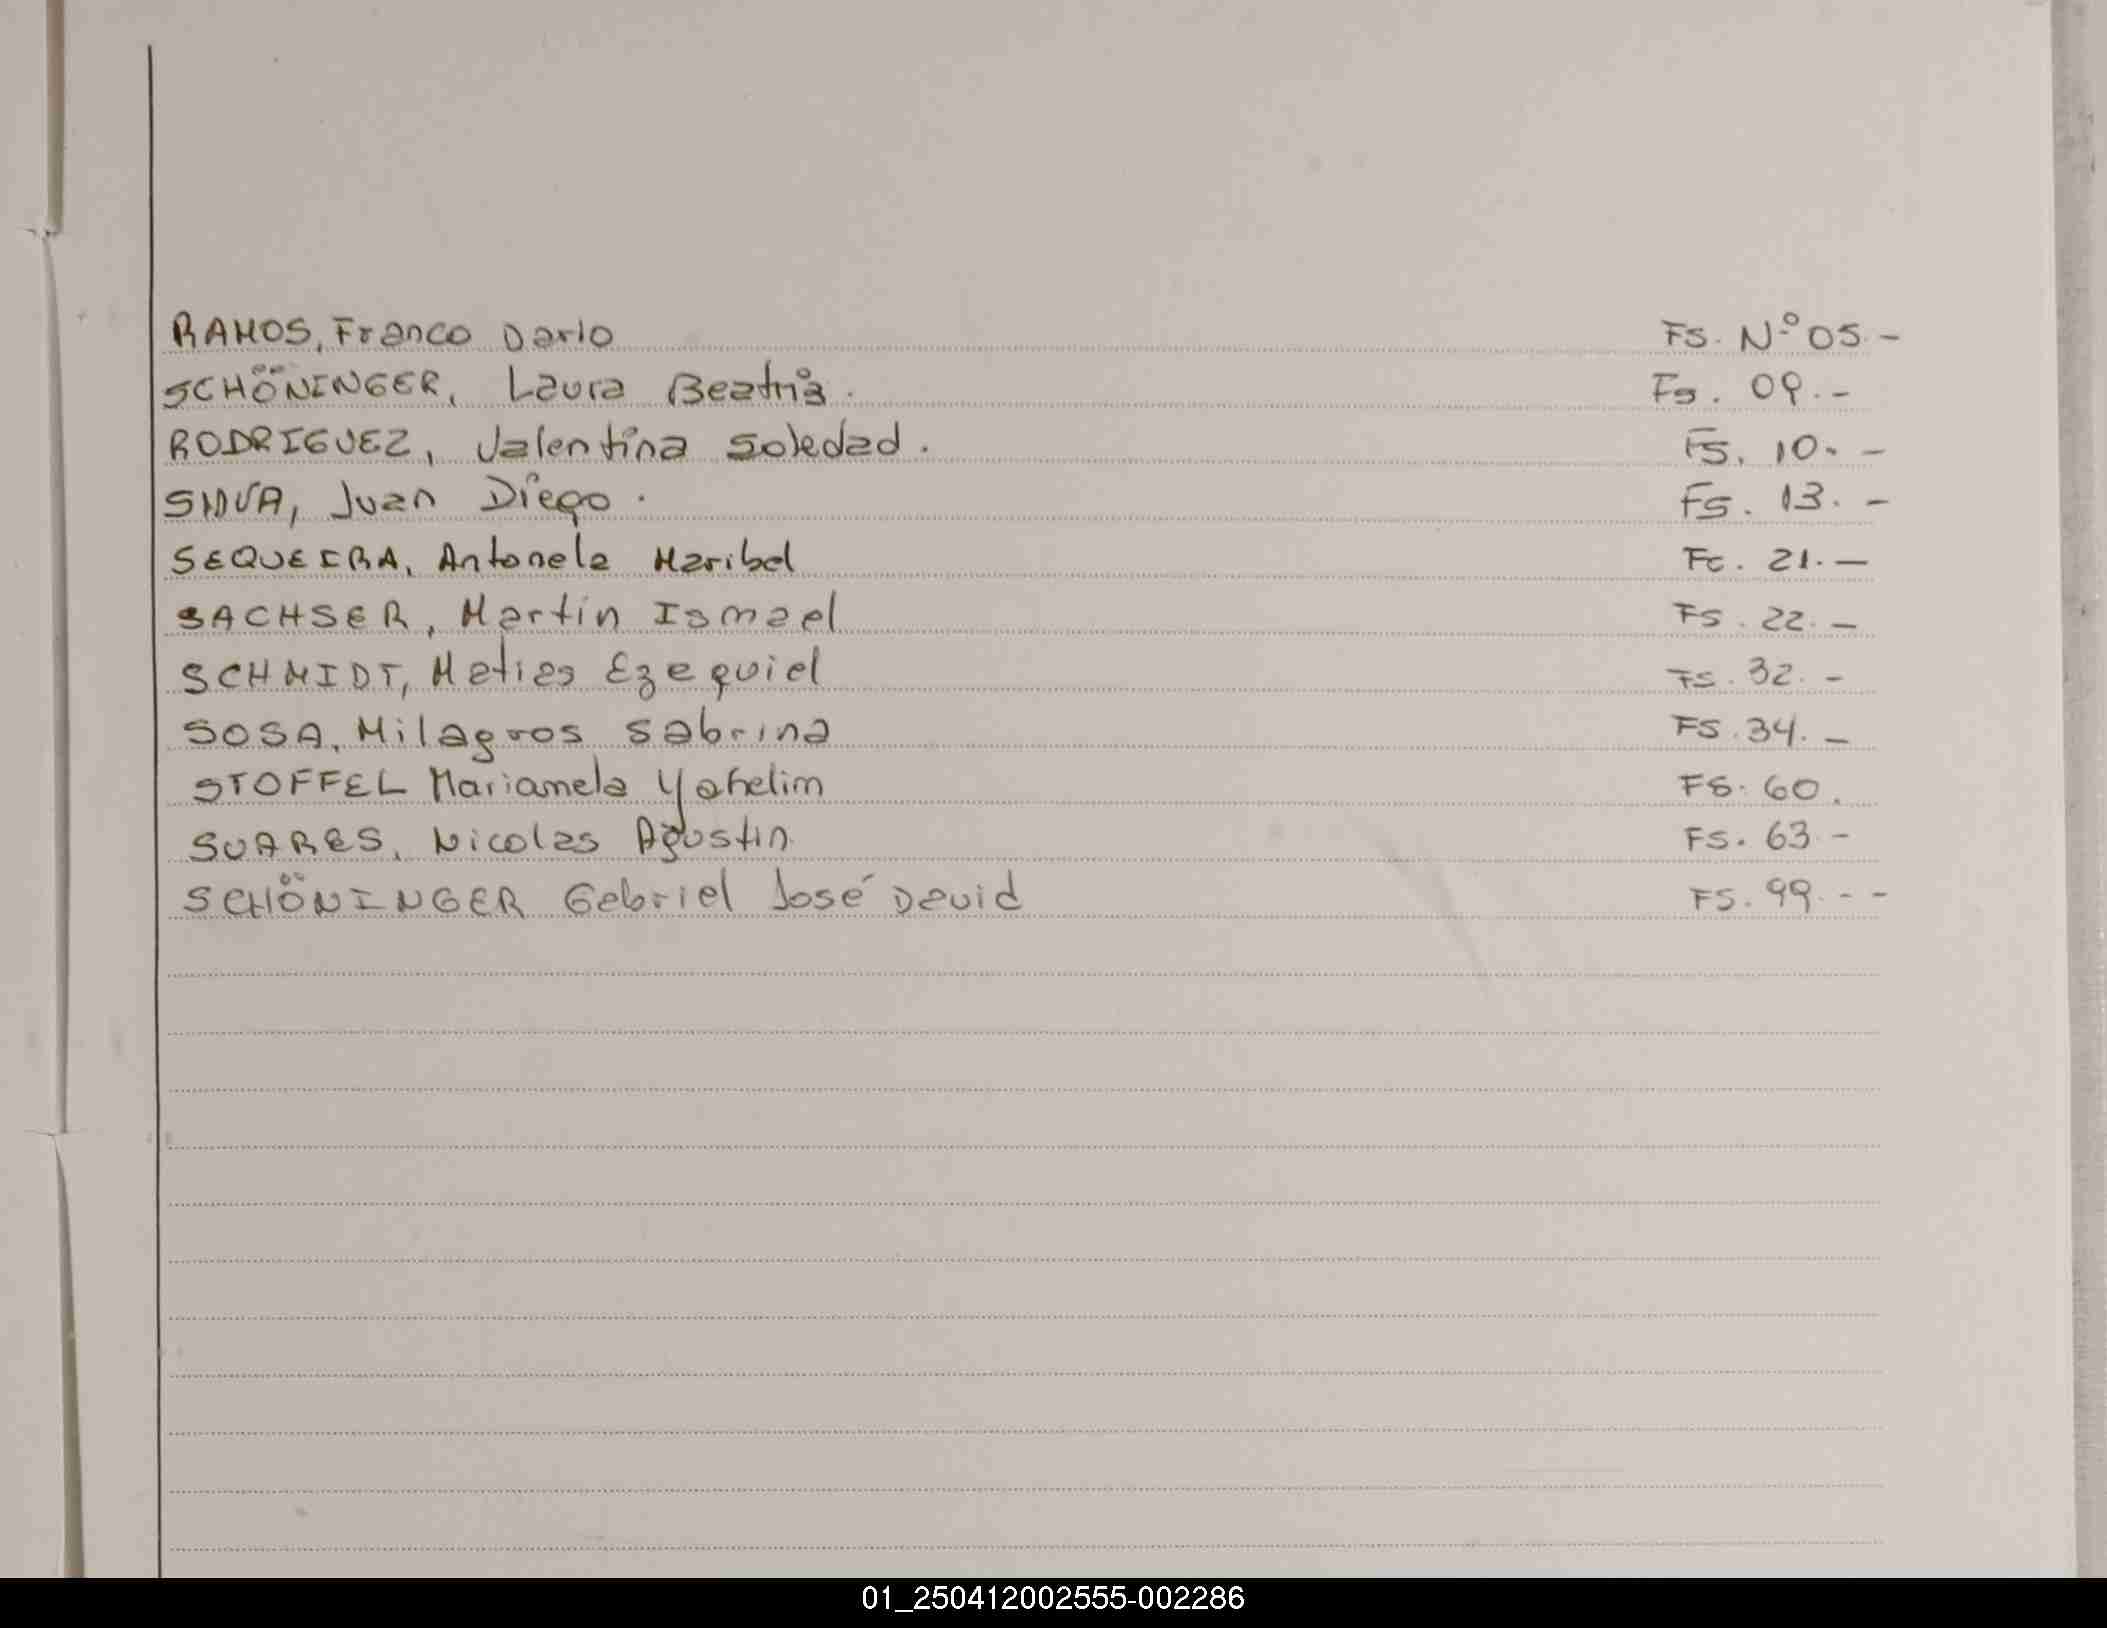 RAMOS, Franco Dario Fs. Nº 05.-
SCHÖNINGER, Laura Beatriz. Fs. 09.-
RODRIGUEZ, Valentina Soledad. Fs. 10.-
SILVA, Juan Diego. Fs. 13.-
SEQUEIRA, Antonela Maribel Fc. 21.-
SACHSER, Martin Ismael Fs. 22.-
SCHMIDT, Matias Ezequiel Fs. 32.-
SOSA, Milagros Sabrina Fs. 34.-
STOFFEL Mariamela Fs. 60.
SUARES, Nicolas Agustin Fs. 63.-
SCHÖNINGER Gabriel José David Fs. 99.--
01_250412002555-002286